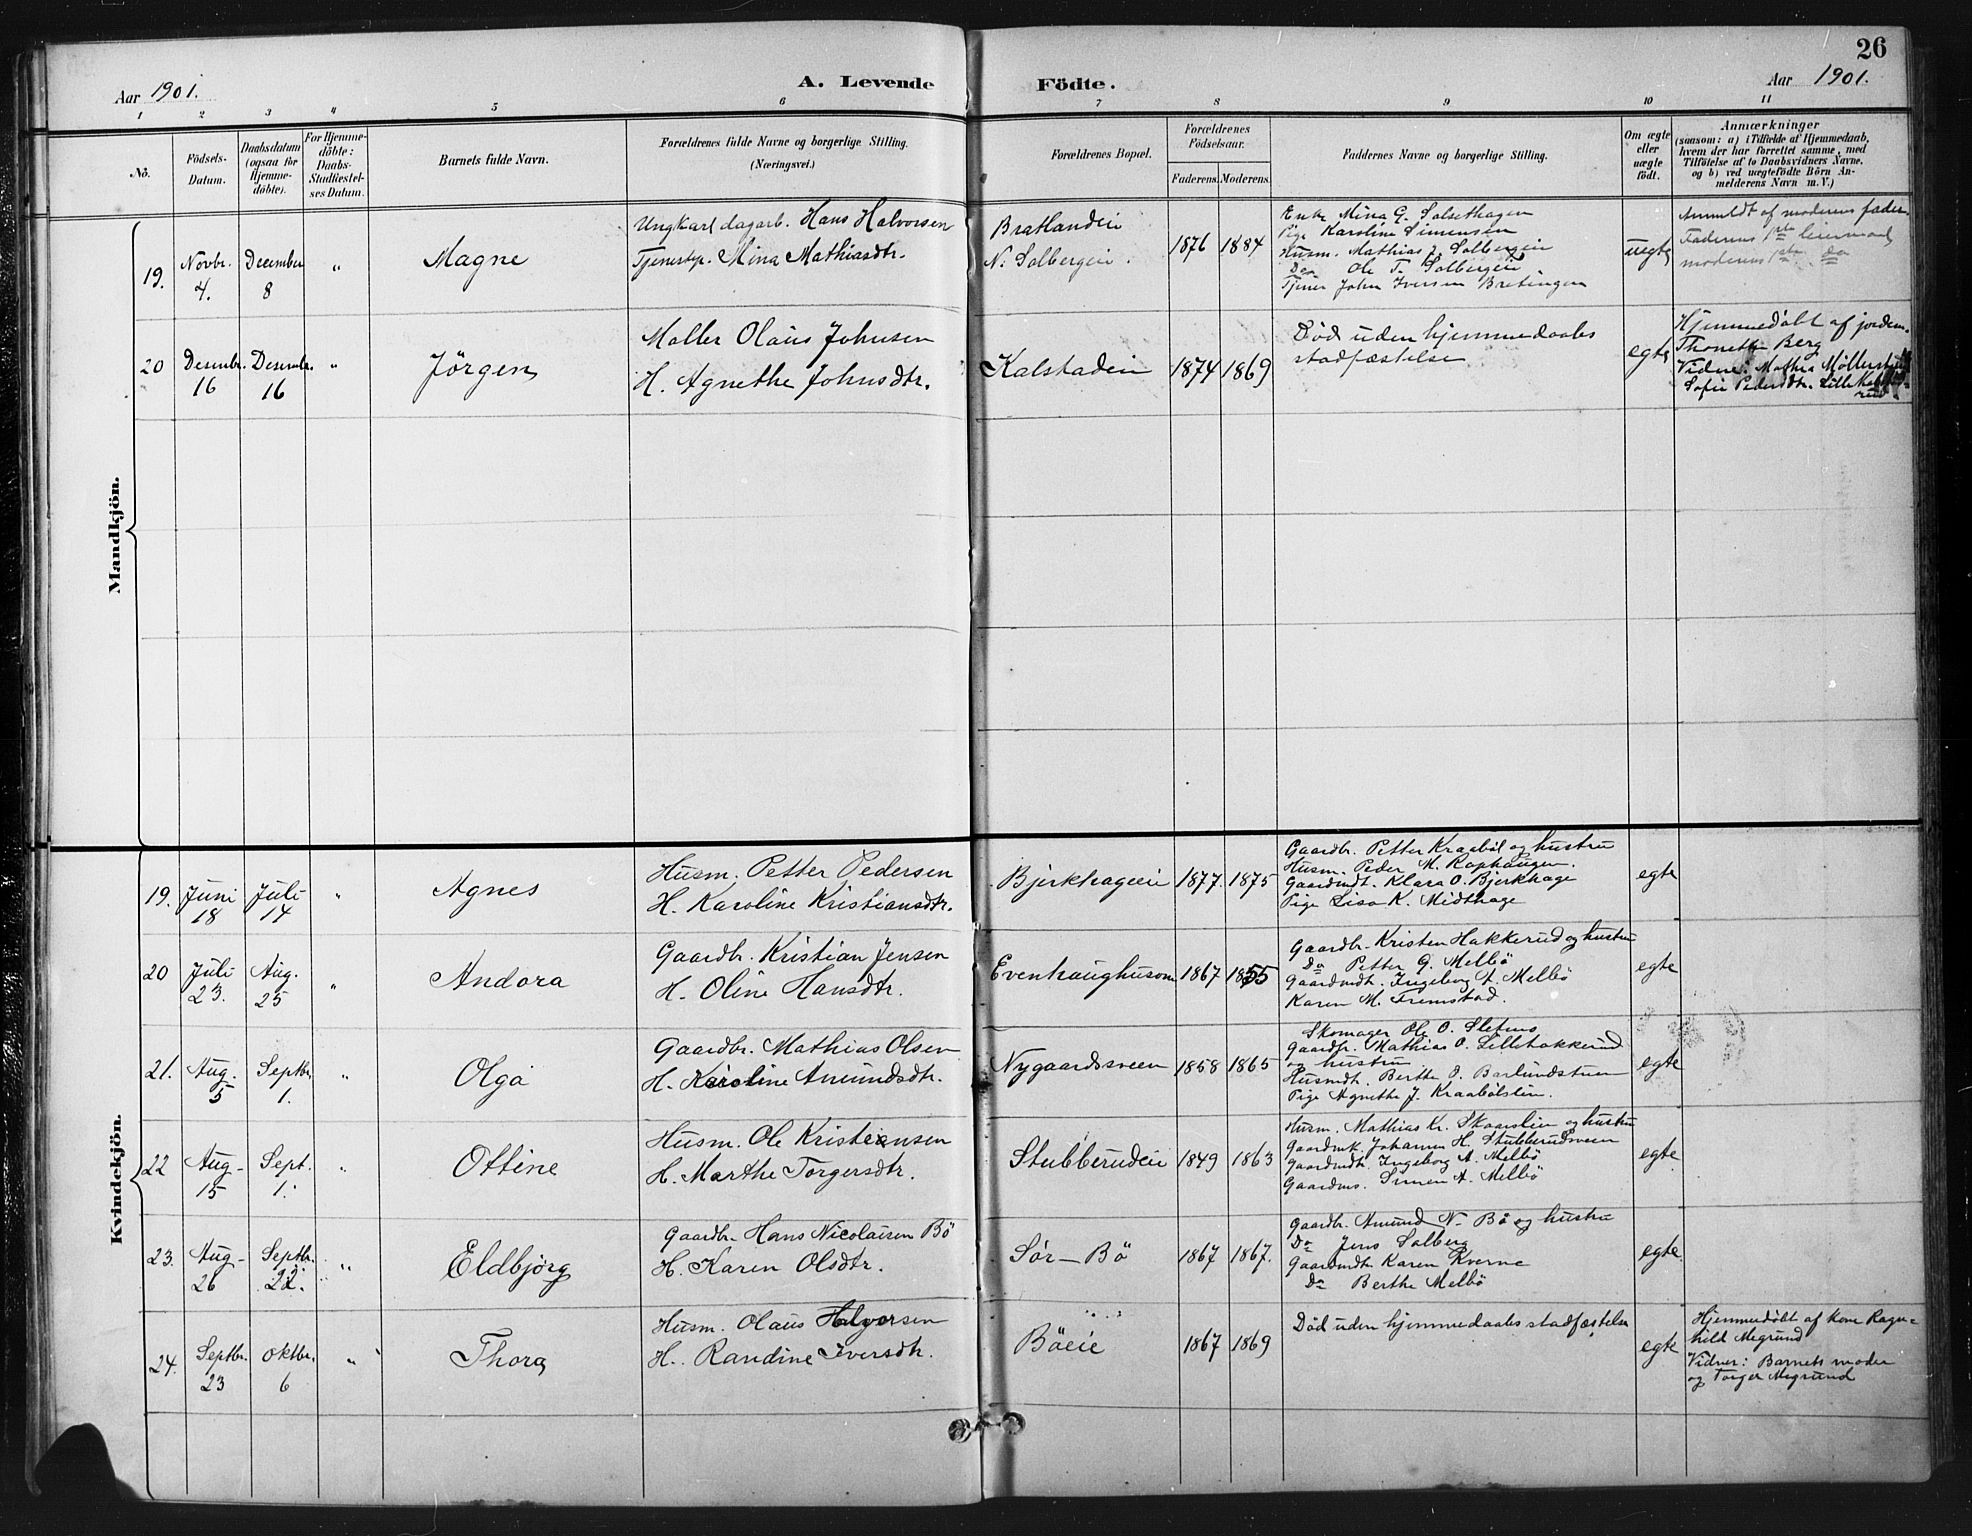 26
Aar 1901.
A. Levende Födte.
Aar 1901.
1 2 3 4 5 6 7 8 9 10 11
No.
Födsels-Datum.
Daabsdatum (ogsaa for Hjemme-döbte).
For Hjemme-döbte: Daabs-Stadfæstel-ses Datum.
Barnets fulde Navn.
Forældrenes fulde Navne og borgerlige Stilling.
(Næringsvei.)
Forældrenes Bopæl.
Forældrenes Födselsaar.
Faderens. Moderens.
Faddernes Navne og borgerlige Stilling.
Om ægte eller uægte födt.
Anmærkninger
(saasom: a) i Tilfælde af Hjemmedaab,
hvem der har forrettet samme, med
Tilföielse af to Daabsvidners Navne,
og b) ved uægtefödte Börn An-
melderens Navn m. V.)
Mandkjön.
19. Novbr. 4. December 8 " Magne
Ungkarl dagarb. Hans Halvorsen
Tjenestp. Mina Mathiasdtr.
Bratlandeie
N. Solbergeie.
1876 1884
Enke Mina G. Solsethagen
Pige Karoline Simensen
Husm. Mathias J. Solbergeie
Do Ole T. Solbergeie.
Tjener John Iversen Bretingen
uegte
Anmeldt af moderens fader.
Faderens 1ste leiermaal
moderens 1ste do
20 Desembr. 16 Desembr. 16 " Jørgen
Møller Olaus Johnsen
H. Agnethe Johnsdtr.
Kalstadeie
1874 1869
Død uden hjemmedaabs
stadfæstelse
egte
Hjemmedøbt af jordm.
Thonette Berg
Vidne: Mathea Möllerstuen
Sofie Pedersdtr.
Kvindekjön.
19. Juni 18 Juli 14 " Agnes
Husm. Petter Pedersen
H. Karoline Kristiansdtr.
Bjerkhageeie
1877. 1875
Gaardbr. Petter Kraabøl og hustru
Husm. Peder M. Rophaugen.
Gaardmdt. Klara O. Bjerkhage
Pige Lisa K. Midthage
egte
20 Juli 23. Aug. 25 " Andora
Gaardbr. Kristian Jensen
H. Oline Hansdtr.
Evenhaughusom
1867 1855
Gaardbr. Kristen Hakkerud og hustru
Do Petter G. Melbø
Gaardmdt. Ingeborg A. Melbø
Karen M. Fremstad.
egte
21. Aug. 5 Septbr. 1. " Olga
Gaardbr. Mathias Olsen
H. Karoline Amundsdtr.
Nygaardssveen
1858 1865
Skomager Ole O. Sletmo
Gaardbr. Mathias O. Lillehakkerud
og hustru
Husmdt. Berthe O. Barlundstuen
Pige Agnethe J. Kraabølslien.
egte
22 Aug. 15 Sept. 1. " Ottine
Husm. Ole Kristiansen
H. Marthe Torgersdtr.
Stubberudeie
1849 1863
Husm. Mathias Kr. Skaarslien og hustru
Gaardmk. Johannes H. Stubberudsveen
Gaardmdt. Ingeborg A. Melbø
Gaardms. Simen A. Melbø
egte
23. Aug. 26 Septbr. 22. " Eldbjørg
Gaardbr. Hans Nicolaisen Bø
H. Karen Olsdtr.
Sør-Bø
1867 1867.
Gaardbr. Amund N. Bø og hustru
Do Jens Solberg
Gaardmdt. Karen Kverne
Do Berthe Melbø
egte
24. Septbr. 23 Oktbr. 6 " Thora
Husm. Olaus Halvorsen
H. Randine Iversdtr.
Böeie
1867 1869
Død uden hjemmedaabs stadfæstelse
egte
Hjemmedøbt af kone Ragn-
hild Megrund
Vidner: Barnets moder
og Torger Megrund